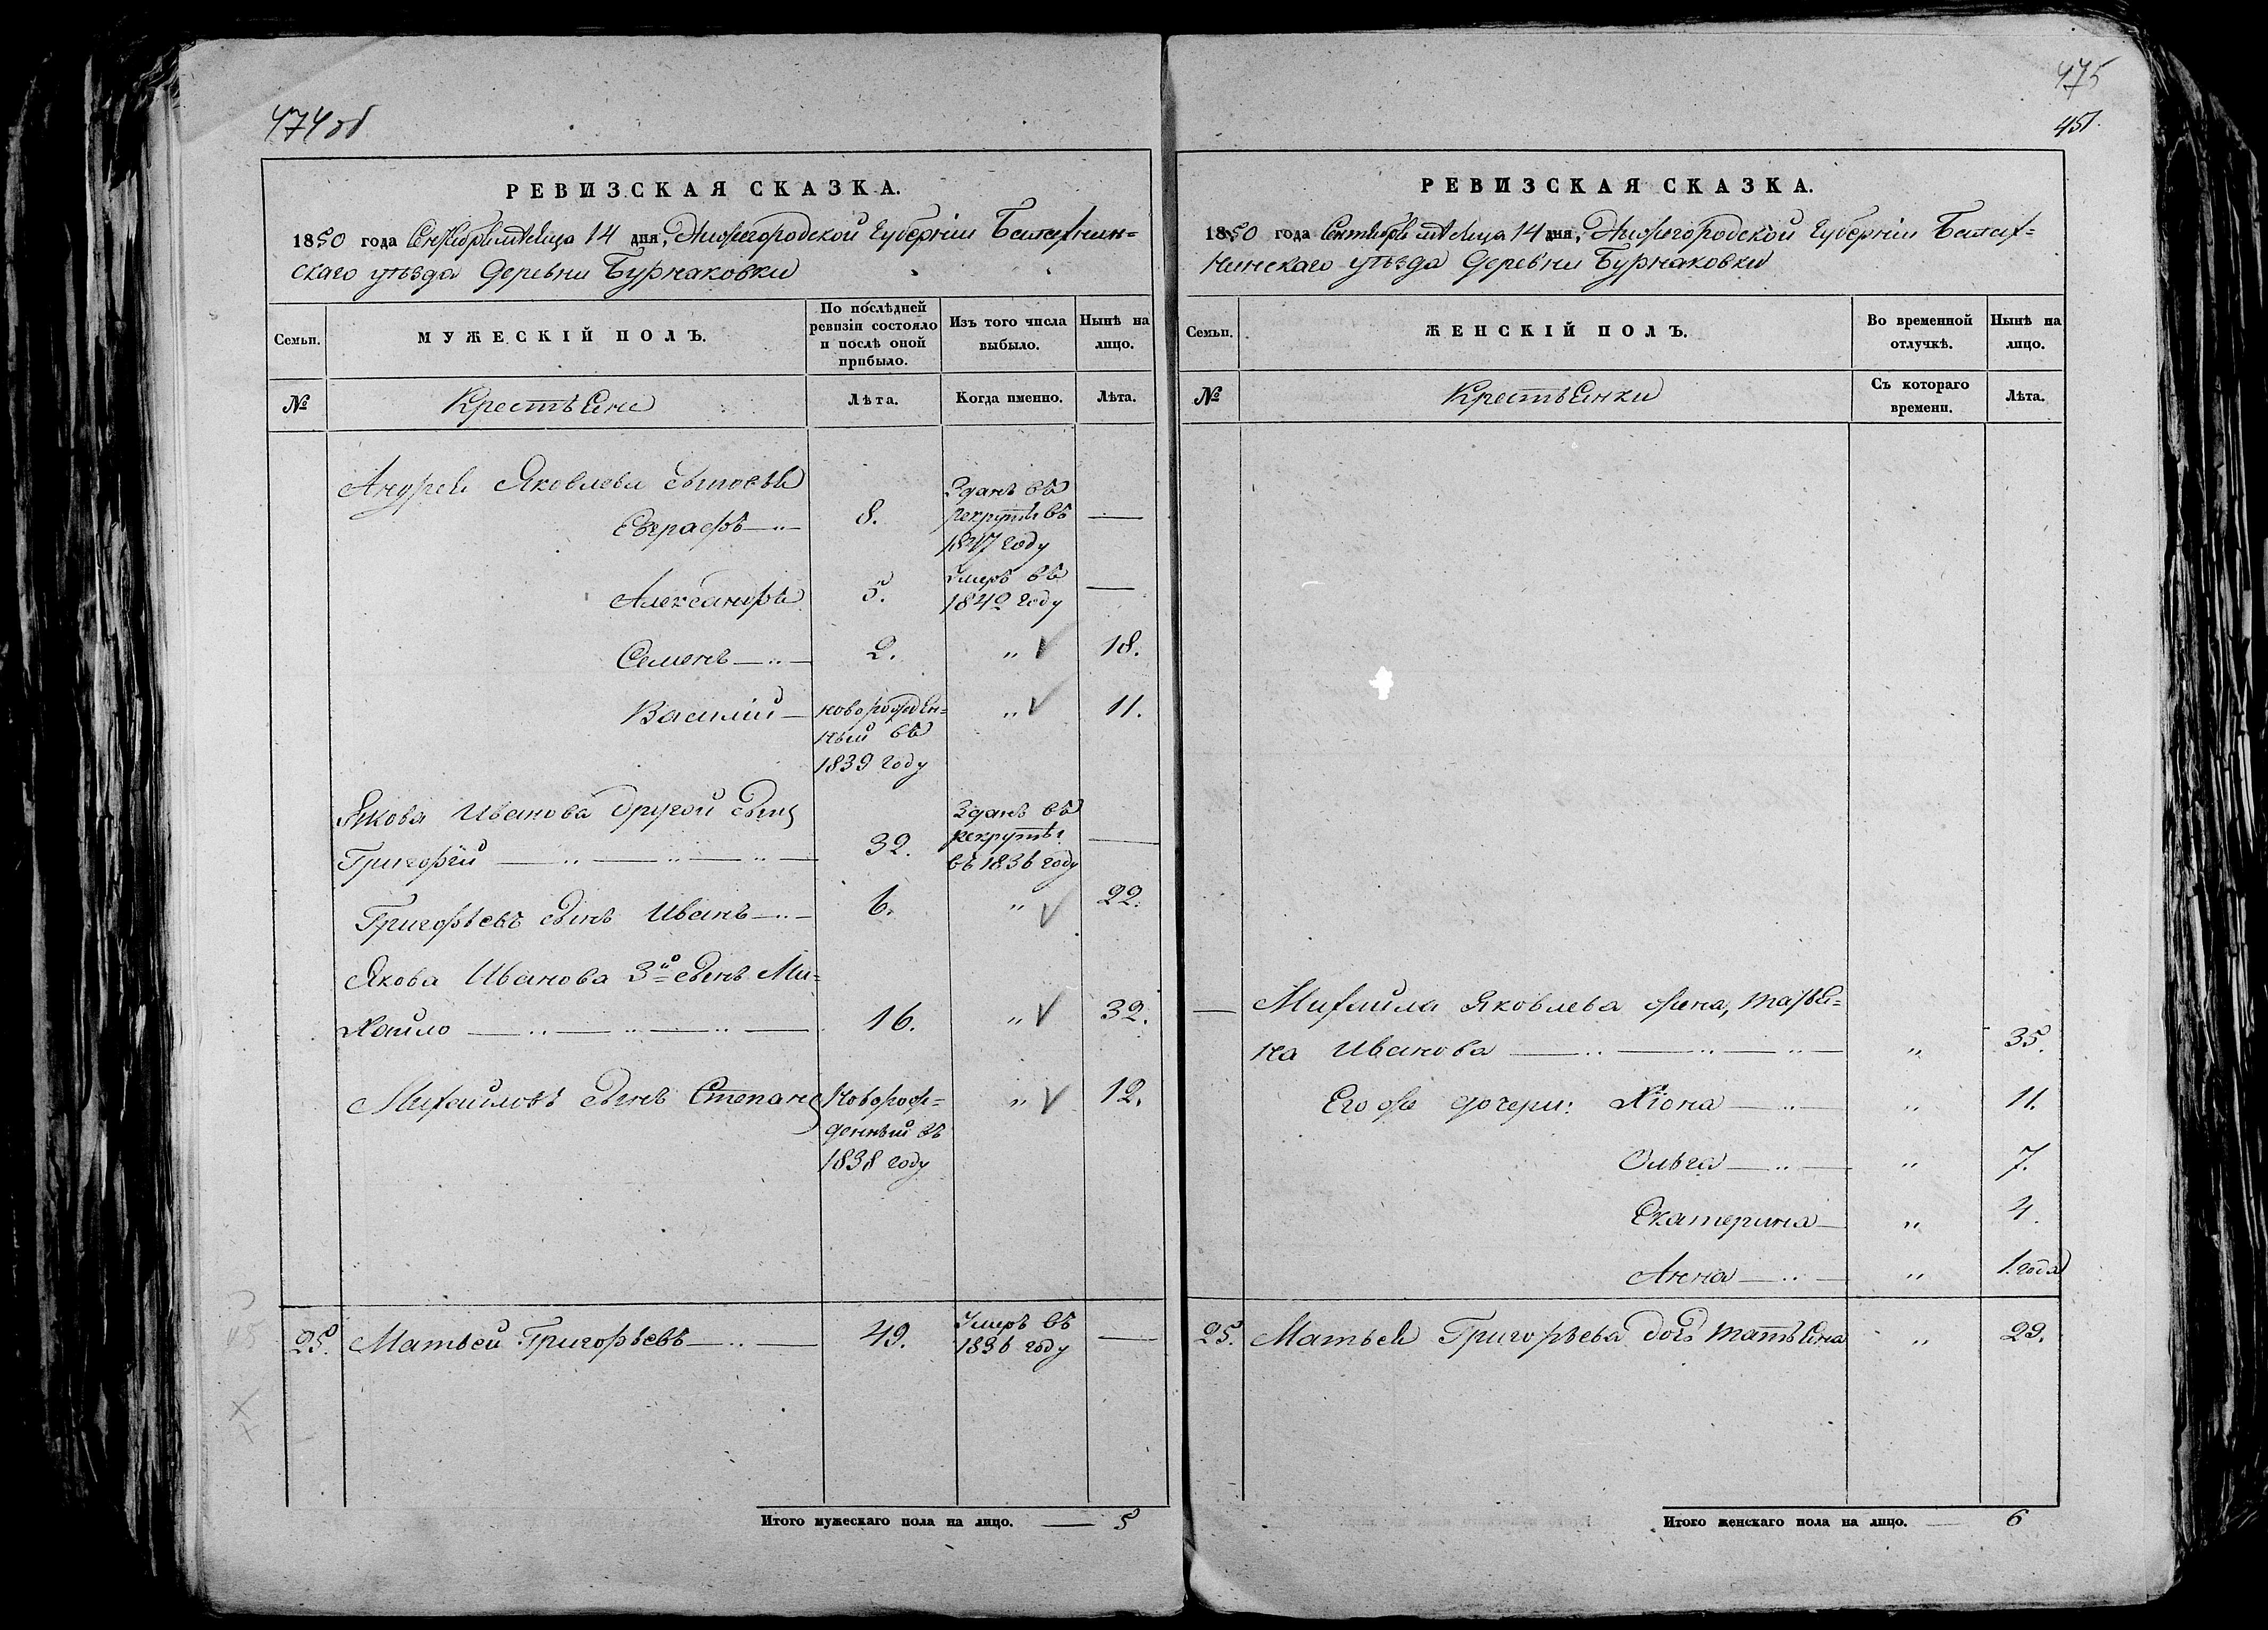 474об
РЕВИЗСКАЯ СКАЗКА.
1850 года Сентября месяца 14 дня, Нижегородской Губернiи Балахнин-
скаго уѣзда деревни Бурнаковки
Семьи.
МУЖЕСКIЙ ПОЛЪ.
По послѣдней
ревизiи состояло
и послѣ оной
прибыло.
Изъ того числа
выбыло.
Нынѣ на
лицо.
№
Крестьяне
Лѣта.
Когда именно.
Лѣта.
Андрея Яковлева сыновья
Евграфъ 8. Зданъ въ
рекруты въ
1847 году
Александръ 5. Умеръ въ
1840 году
Семенъ 2. „ 18.
Василiй новорожден=
ный въ
1839 году „ 11.
Якова Иванова другой сынъ
Григорiй 32. Зданъ въ
рекруты
въ 1836 году
Григорьевъ сынъ Иванъ 6. „ 22.
Якова Иванова 3й сынъ Ми=
хайло 16. „ 32.
Михайловъ сынъ Степанъ Новорож=
денный въ
1838 году „ 12.
25. Матвей Григорьевъ 49. Умеръ въ
1836 году
Итого мужескаго пола на лицо. 5
475
451.
РЕВИЗСКАЯ СКАЗКА.
1850 года Сентября месяца 14 дня, Нижегородской Губернiи Балах=
нинскаго уѣзда деревни Бурнаковки
Семьи.
ЖЕНСКIЙ ПОЛЪ.
Во временной
отлучкѣ.
Нынѣ на
лицо.
№
Крестьянки
Съ котораго
времени.
Лѣта.
Михайла Яковлева жена, Марья=
на Иванова „ 35.
Его же дочери: Хiона „ 11.
Ольга „ 7.
Екатерина „ 4.
Анна „ 1. года
25. Матвея Григорьева дочь Татьяна „ 29.
Итого женскаго пола на лицо. 6